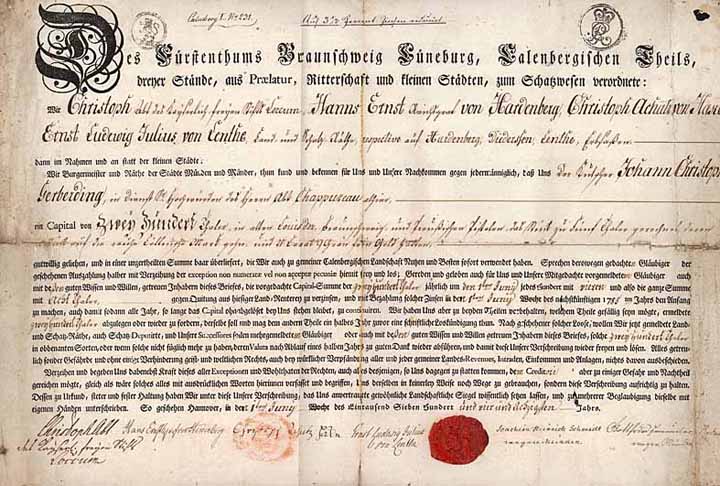 Calenberg I. No 231.
Des Fürstenthums Braunschweig Lüneburg, Calenbergischen Theils,
dreyer Stände, aus Prælatur, Ritterschaft und kleinen Städten, zum Schatzwesen verordnete:
Wir Christoph Abt des Kayserlich freyen Stifts Loccum, Hanns Ernst von Hardenberg, Christoph
Ernst Ludwig Julius von Lenthe, Land und Schatz Räthe, respective auf Hardenberg, Lenthe, Erbsaßen
dann im Nahmen und an statt der kleinen Städte:
Wir Burgermeister und Räthe der Städte Münden und Münder, thun kund und bekennen für Uns und Unsere Nachkommen gegen jedermänniglich, daß Uns Der Kutscher Johann Christoph
Gerberding, in Dienst Sr Hochwürden des Herrn Abt Chappuzeau
ein Capital von Zwey Hundert Thaler, in alten Louisdor, braunschweig. und Preußischen Pistolen, das Stück zu Fünf Thaler gerechnet, deren
gutwillig geliehen, und in einer unzertheilten Summe baar überliefert, die Wir auch zu gemeiner Calenbergischen Landschaft Nutzen und Besten sofort verwendet haben. Sprechen derowegen gedachte Gläubiger der
geschehenen Auszahlung halber mit Verzeihung der exception non numeratæ vel non acceptæ pecuniæ hiemit frey und los; Gereden und geloben auch für Uns und Unsere Mitgedachte vorgemeldeten Gläubiger auch
mit dessen guten Wissen und Willen, getreuen Inhabern dieses Briefes, die vorgedachte Capital-Summe der zweyhundert Thaler jährlich um den 1sten Juny jedes Hundert mit vieren und also die ganze Summe
mit Acht Thaler gegen Quitung aus hiesiger Land-Renterey zu verzinsen, und mit Bezahlung solcher Zinsen in der 1sten Juny Woche des nächstkünftigen 1785sten Jahrs den Anfang
zu machen, auch damit sodann alle Jahr, so lange das Capital ohnabgelöset bey Uns stehen bleibet, zu continuiren. Wir haben Uns aber zu beyden Theilen vorbehalten, welchem Theile gefällig seyn mögte, ermeldete
zweyhundert Thaler abzulegen oder wieder zu fordern, derselbe soll und mag dem andern Theile ein halbes Jahr zuvor eine schriftliche Loskündigung thun. Nach geschehener solcher Loose, wollen Wir jetzt gemeldete Land-
und Schatz-Räthe, auch Schatz-Deputirte, und Unsere Successores sodann mehrgemeldeten Gläubiger oder auch mit dessen guten Wissen und Willen getreuen Inhabern dieses Briefes, solche zweyhundert Thaler
in obbenanten Sorten, oder wenn solche nicht füglich mehr zu haben, deren Valor nach Ablauf eines halben Jahrs zu guten Dank wieder abführen, und damit diese Unsere Verschreibung wieder freyen und lösen. Alles getreu-
lich sonder Gefährde und ohne einige Verhinderung geist- und weltlichen Rechts, auch bey würklicher Verpfändung aller und jeder gemeiner Landes-Revenues, Intraden, Einkommen und Anlagen, nichts davon ausbeschieden.
Verzeihen und begeben Uns dabenebst Kraft dieses aller Exceptionen und Wohlthaten der Rechten, auch alles desjenigen, so Uns dagegen zu statten kommen, dem Creditori aber zu einiger Gefahr und Nachtheil
gereichen mögte, gleich als wäre solches alles mit ausdrücklichen Worten hierinnen verfasset und begriffen, Uns derselben in keinerley Weise noch Wege zu gebrauchen, sondern diese Verschreibung aufrichtig zu halten.
Dessen zu Urkund, steter und fester Haltung haben Wir unter diese Unsere Verschreibung, das Uns anvertraute gewöhnliche Landschaft Siegel wissentlich setzen lassen, und zu mehrerer Beglaubigung dieselbe mit
eigenen Händen unterschrieben. So geschehen Hannover, in der 1sten Juny Woche des Eintausend Sieben Hundert und vier und achtzigsten Jahrs.
Christoph Abt
Loccum
Ernst Ludwig Julius
von Lenthe
Joachim Heinrich Schmidt